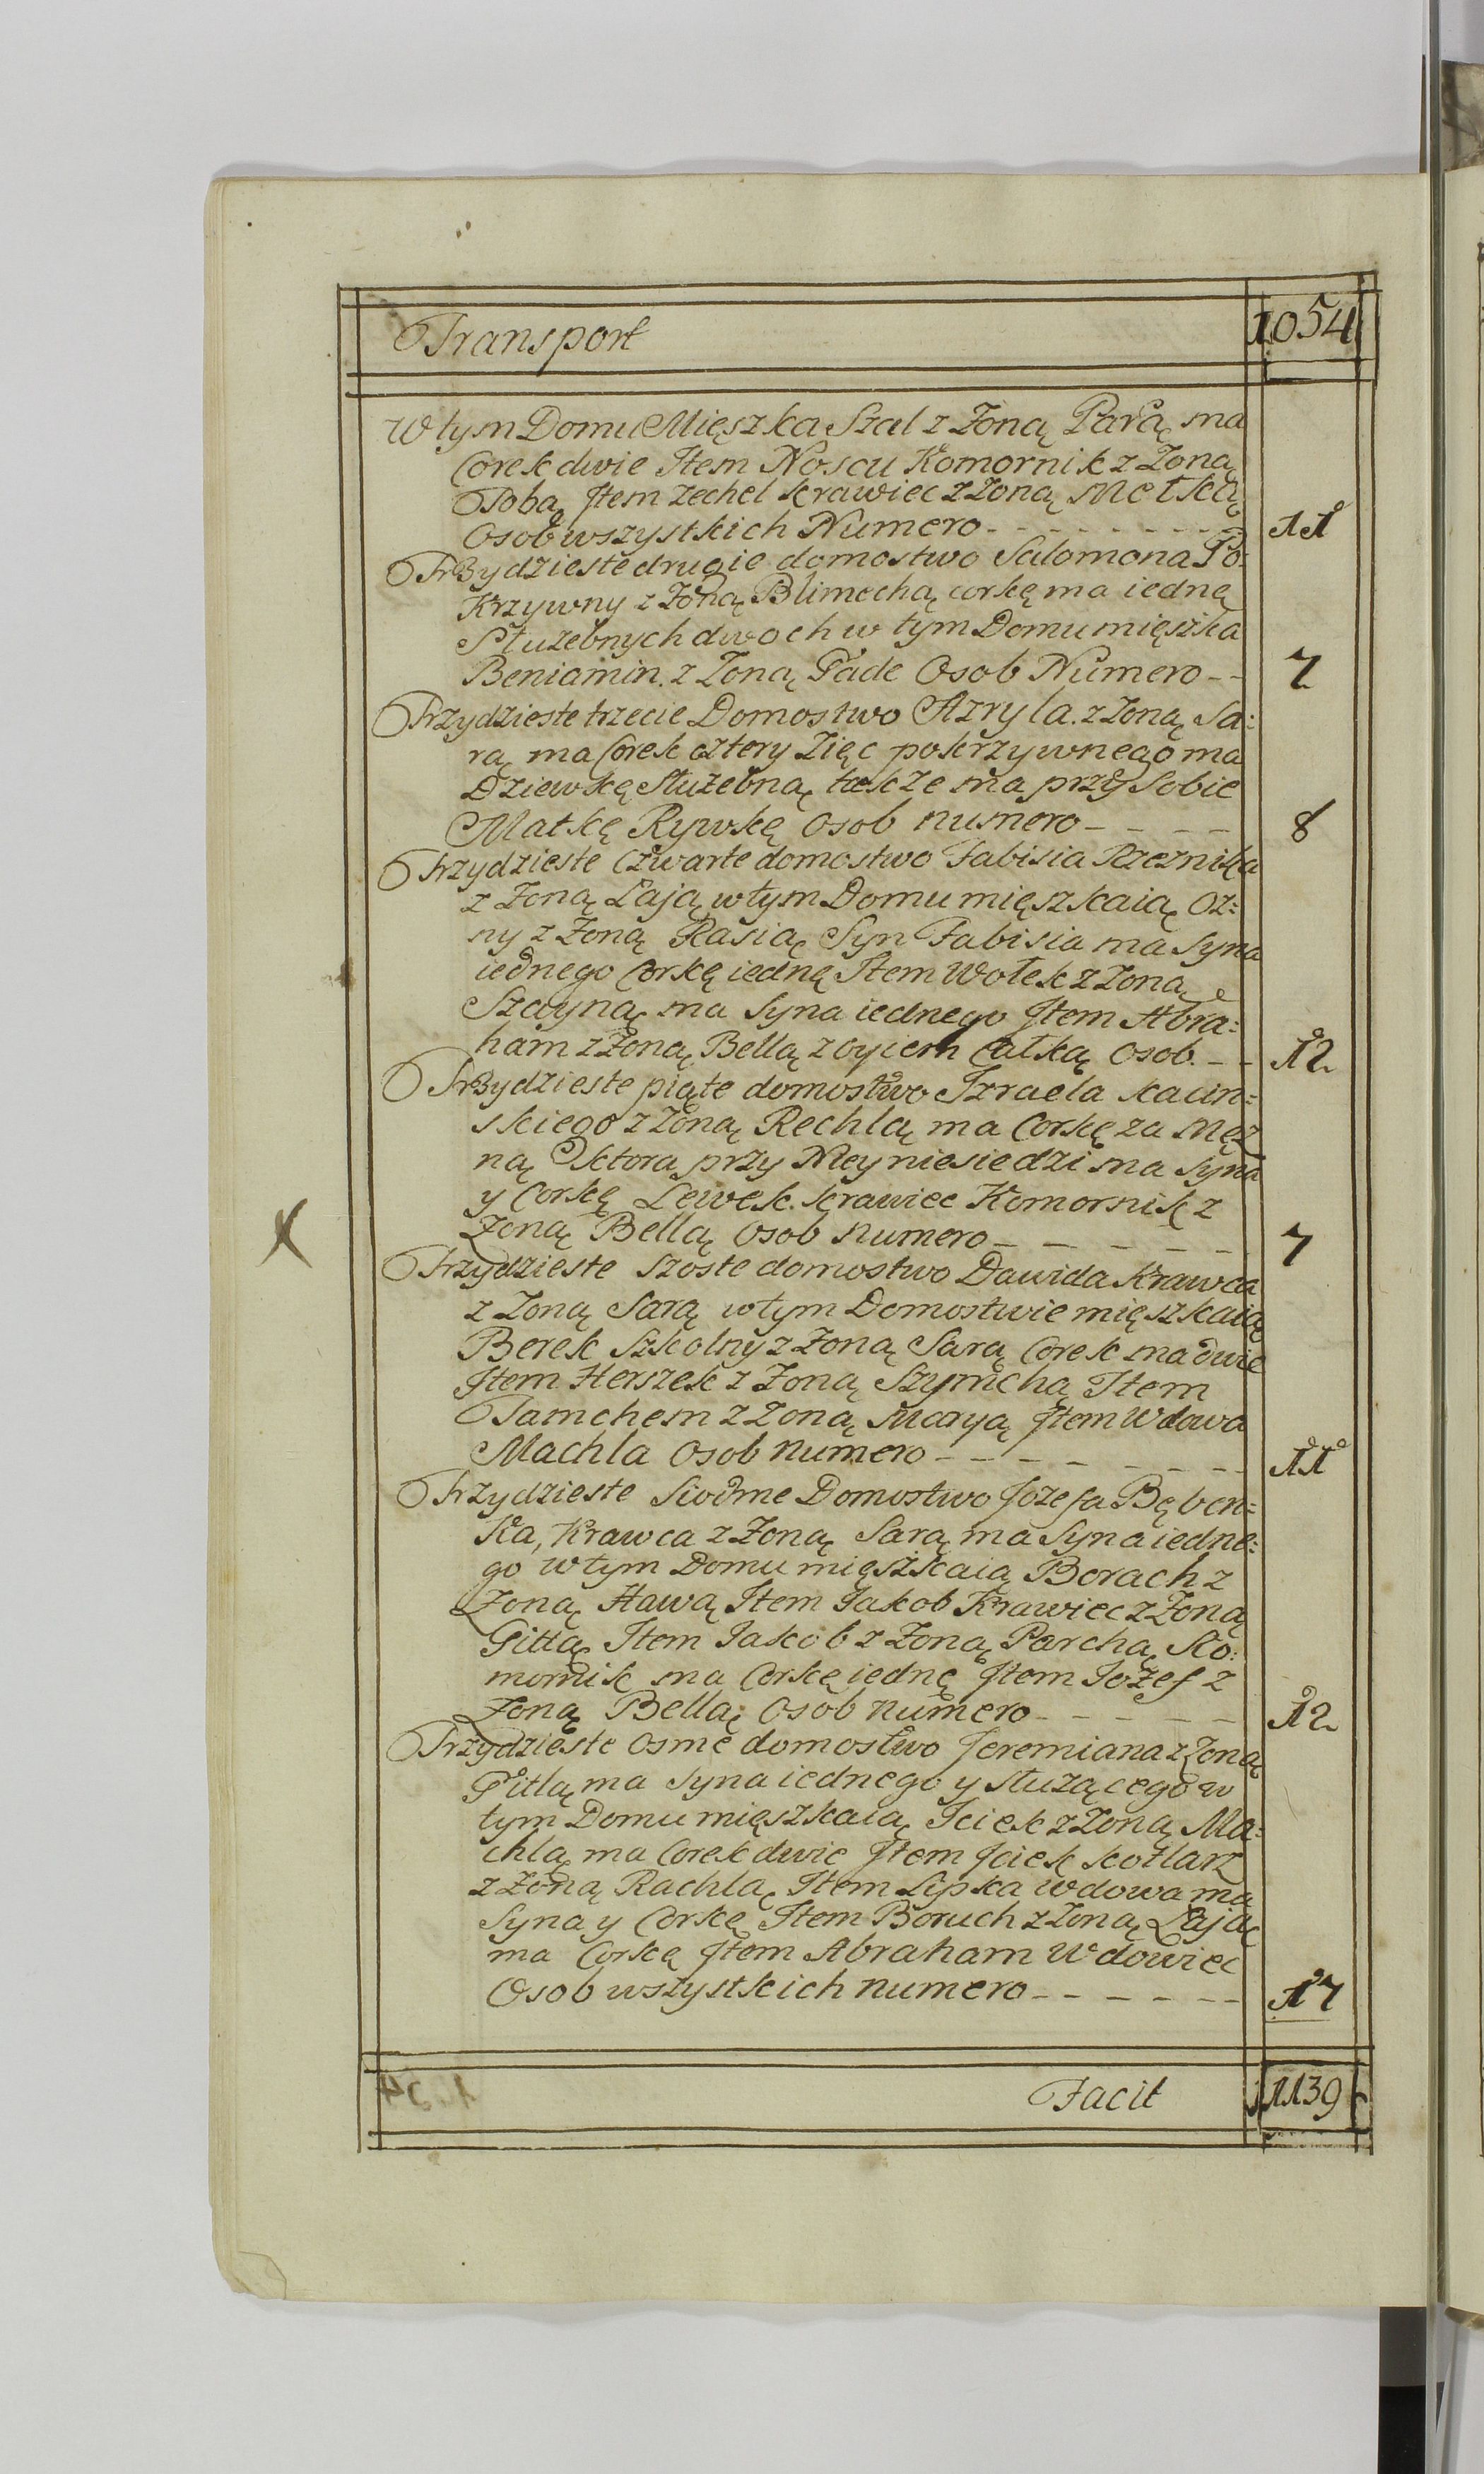 Transport 1054
W tym Domu Mięszka Szal z Zoną Parą ma
Corek dwie Item Noscu Komornik z Zoną
Tobą Item Zechel krawiec z Zoną Metką
Osob wszystkich Numero - - - - - - - - 11
Trzydzieste drugie domostwo Salomona Po:
Krzywny z Zoną Blimechą corkę ma iednę
Służebnych dwoch w tym Domu mięszka
Beniamin. z Zoną Pade Osob Numero - - 7
Trzydzieste trzecie Domostwo Azryla. z Zoną Sa:
rą ma Corek cztery Zięc pokrzywnego ma
Dziewkę Służebną także ma przy Sobie
Matkę Rywkę Osob numero - - - - 8
Trzydzieste Czwarte domostwo Fabisia Rzeznika
z Zoną Łają w tym Domu mięszkaią Oz:
ny z Zoną Rasią Syn Fabisia ma Syna
iednego Corkę iednę Item Wołek z Zoną
Szayną ma Syna iednego Item Abra:
ham z Zoną Bellą z oyiem Całką osob. - - 12
Trzydzieste piąte domostwo Izraela kaun=
skiego z Zoną Rechlą ma Corkę za Męż
ną ktora przy Niey niesiedzi ma Syna
y Corkę Lewek. krawiec Komornik z
Zoną Bellą Osob numero - - - - - - 7
Trzydzieste Szoste domostwo Dawida Krawca
z Zoną Sarą w tym Domostwie mięszkaią
Berek Szkolny z Zoną Sarą Corek ma dwie
Item Herszek z Zoną Szymchą Item
Tamchem z Zoną Maryą Item Wdowa
Machla Osob numero - - - - - - - - 11
Trzydzieste Siodme Domostwo Jozefa Bęben=
Ka, Krawca z Zoną Sarą ma Syna iedne:
go w tym Domu mięszkaią Borach z
Zoną Hawą Item Jakob Krawiec z Zoną
Gittą Item Jakob z Zoną Parchą Ko:
mornik ma Corkę iednę Item Jozef z
Zoną Bellą Osob numero - - - - - 12
Trzydzieste Osme domostwo Jeremiana z Zoną
Pitlą ma Syna iednego y Służącego w
tym Domu mięszkaią Iciek z Zoną Ma:
chlą ma Corek dwie Item Iciek kotlarz
z Zoną Rachlą Item Lipka wdowa ma
Syna y Corkę Item Boruch z Zoną Łają
ma Corkę Item Abraham Wdowiec
Osob wszystkich numero - - - - - - 17
Facit 1139